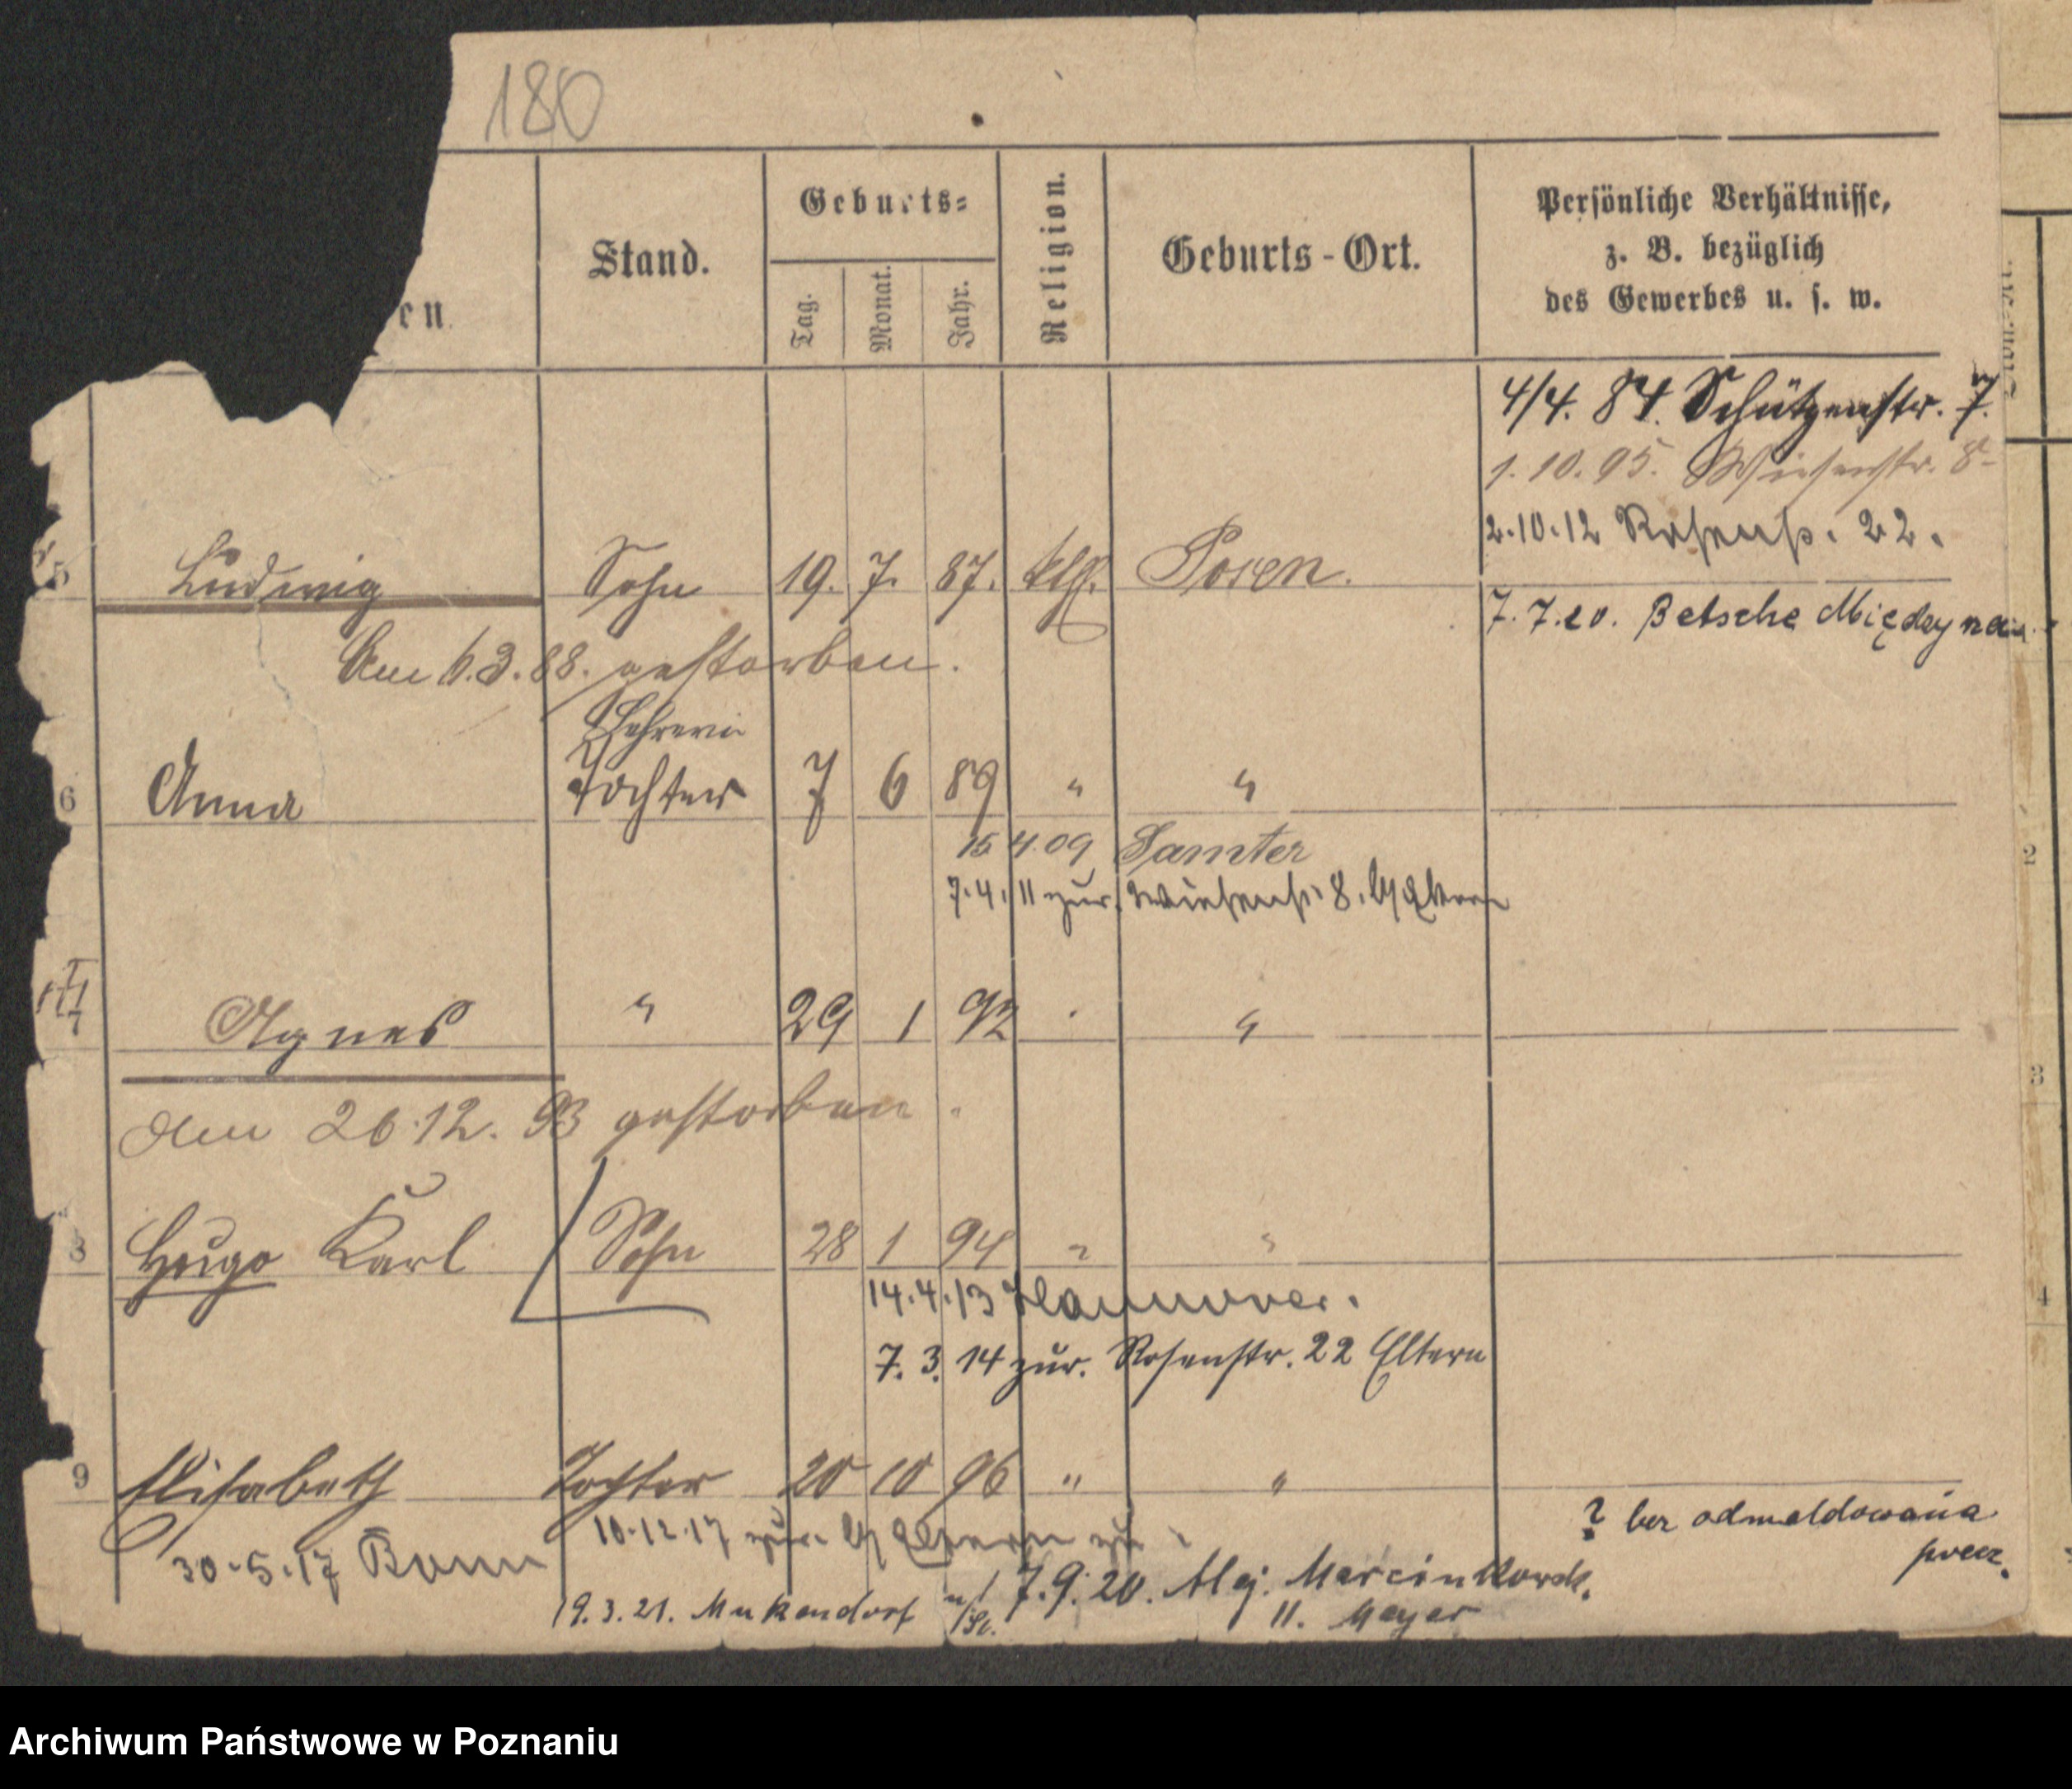 180
en
Stand.
Geburts=
Tag.
Monat.
Jahr.
Religion.
Geburts-Ort.
Persönliche Verhältnisse,
z. B. bezüglich
des Gewerbes u. s. w.
4/4. 84. Schützenstr. 7.
1. 10. 95. Wiesenstr. 8
2.10.12 Rosenstr. 22.
5 Ludwig Sohn 19. 7. 87. kth. Posen.
7.7.20. Betsche Między
Am 6.3.88. gestorben.
Lehrerin
6 Anna Tochter 7 6 89 " "
15 4 09 Samter
7.4.11 zur. Wiesenstr. 8. Eltern
7 Agnes " 29 1 92 "
Am 26.12. 93 gestorben.
8 Hugo Karl Sohn 28 1 94 " "
14.4.13 Hannover.
7. 3. 14 zur. Rosenstr. 22 Eltern
9 Elisabeth Tochter 20 10 96 " "
10.12.17 zur. Eltern
30.5.17 Bonn
? bez odmeldowania
7.9.20. Alej. Marcinkowsk.
11. Meyer
19.3.21. Mukendorf
2
3
4
Archiwum Państwowe w Poznaniu